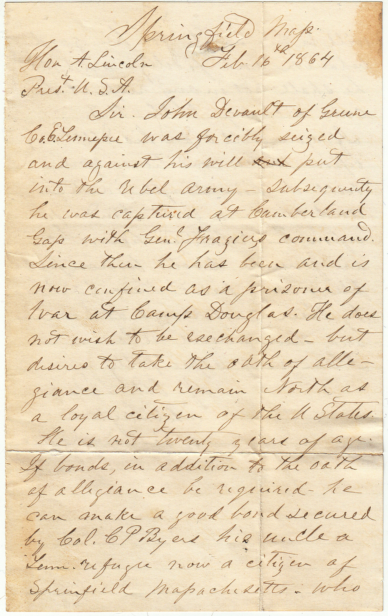 Springfield Mass.
Feb. 16th 1864
Hon A. Lincoln
Prest. U.S.A.
Sir. John Devault of Greene
Co. E. Tennessee was forcibly seized
and against his will put
into the rebel army - subsequently
he was captured at Cumberland
Gap with Genl. Fraziers command.
Since then he has been and is
now confined as a prisoner of
War at Camp Douglas. He does
not wish to be exchanged - but
desires to take the oath of alle-
giance and remain North as
a loyal citizen of the U States
He is not twenty years of age.
If bonds, in addition to the oath
of allegiance be required - he
can make a good bond secured
by Col. C P Byers his uncle a
Tenn. refugee now a citizen of
Springfield Massachusetts - who